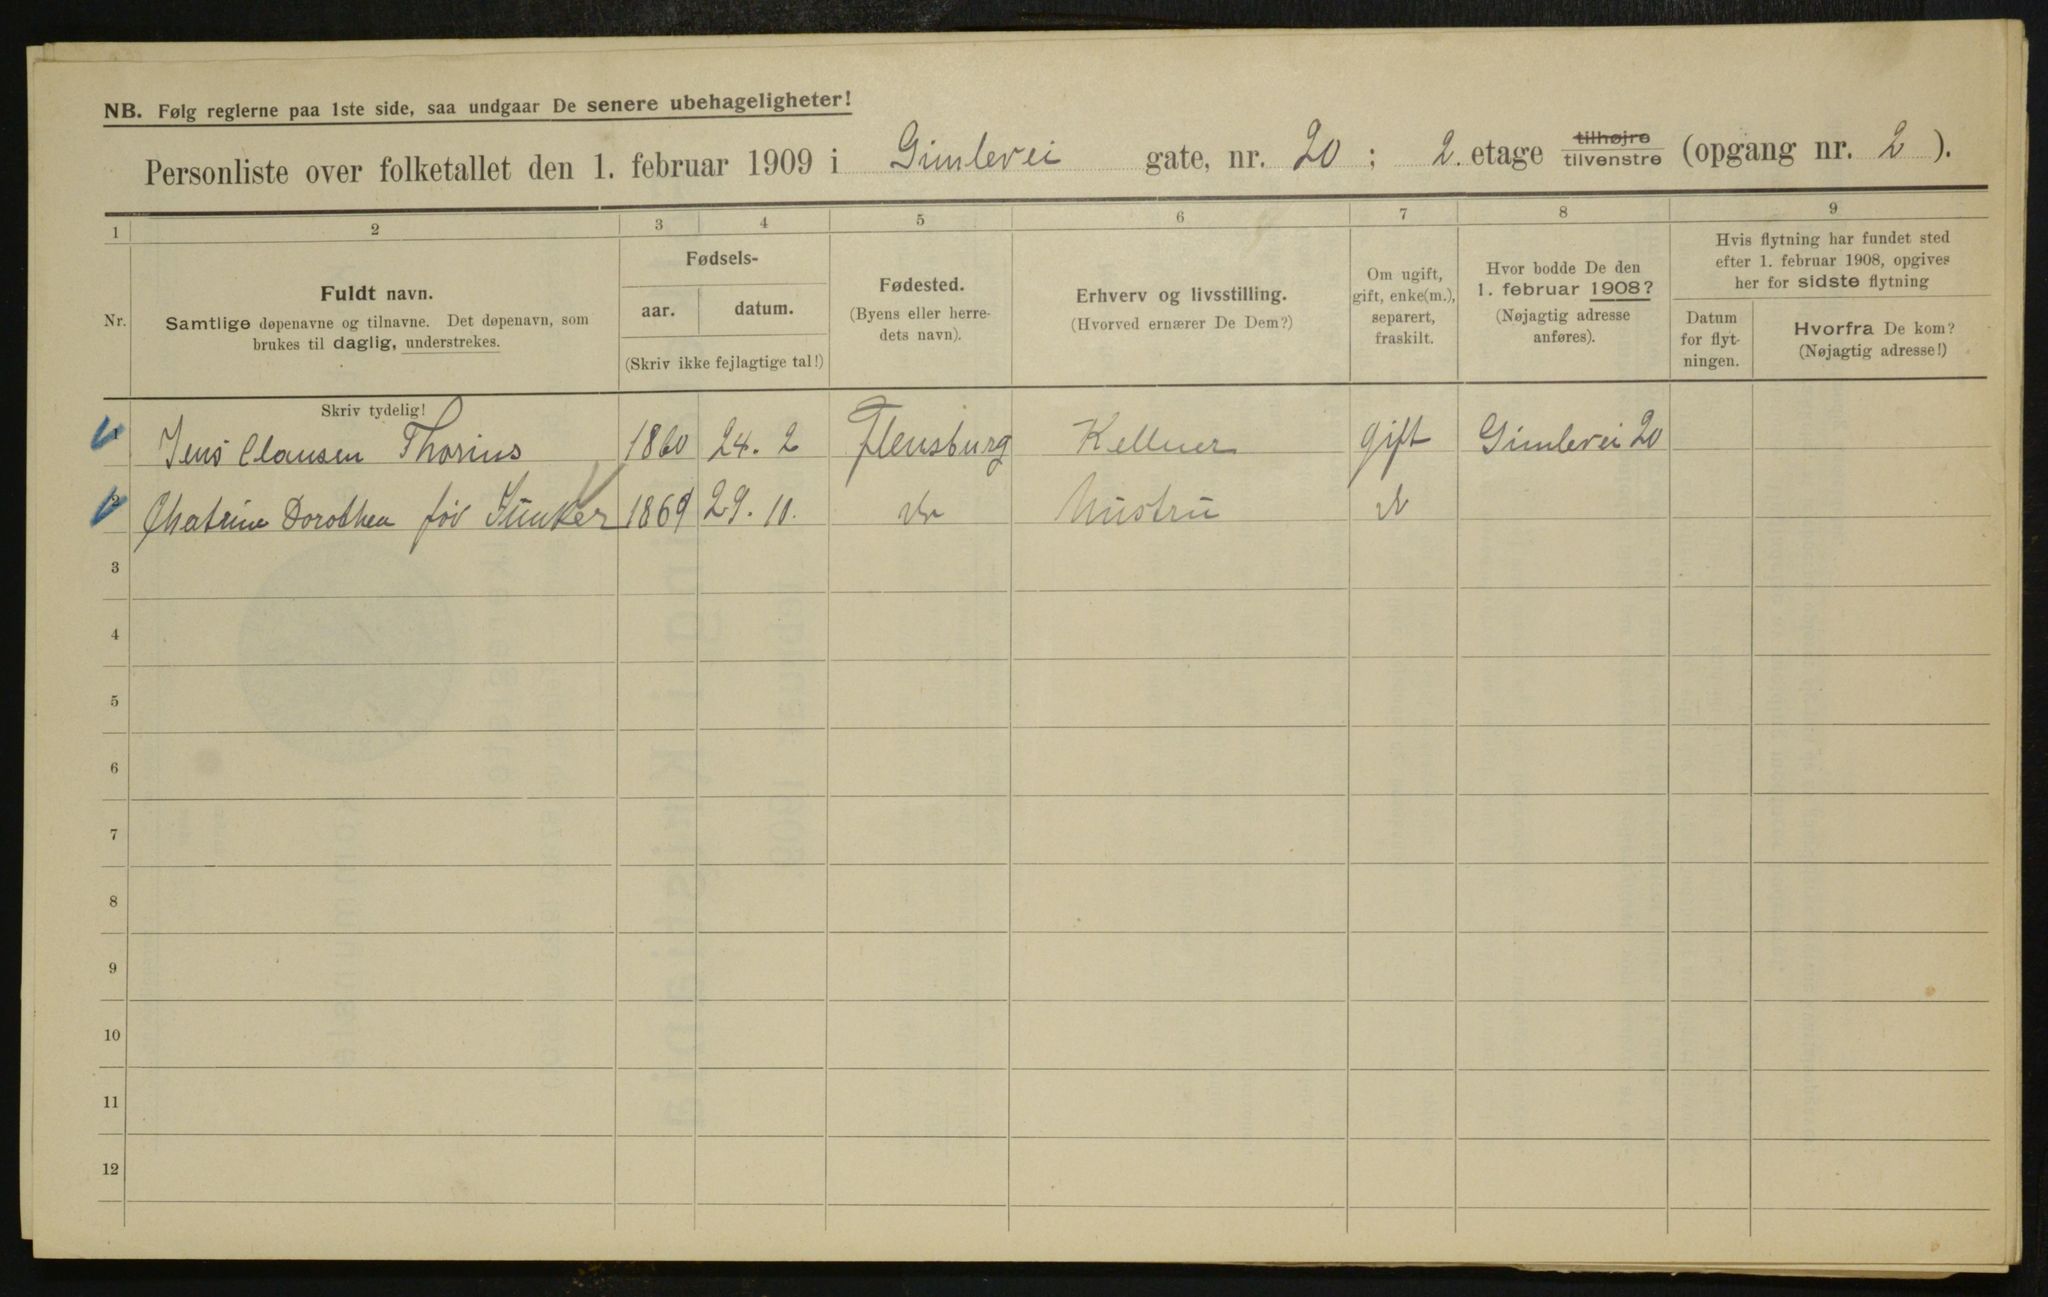 NB. Følg reglerne paa 1ste side, saa undgaar De senere ubehageligheter!
Personliste over folketallet den 1. februar 1909 i Gimlevei gate, nr. 20 ; 2. etage tilhøjre tilvenstre (opgang nr. 2 ).
1 2 3 4 5 6 7 8 9
Nr.
Fuldt navn.
Samtlige døpenavne og tilnavne. Det døpenavn, som
brukes til daglig, understrekes.
Fødsels-
aar. datum.
(Skriv ikke fejlagtige tal!)
Fødested.
(Byens eller herre-
dets navn).
Erhverv og livsstilling.
(Hvorved ernærer De Dem?)
Om ugift,
gift, enke(m.),
separert,
fraskilt.
Hvor bodde De den
1. februar 1908?
(Nøjagtig adresse
anføres).
Hvis flytning har fundet sted
efter 1. februar 1908, opgives
her for sidste flytning
Datum
for flyt-
ningen.
Hvorfra De kom?
(Nøjagtig adresse!)
Skriv tydelig!
1 Jens Clausen Thorius 1860 24. 2 Flensburg Kellner gift Gimlevei 20
2 Chatrine Dorothea før Junker 1869 29. 10. Hustru
3
4
5
6
7
8
9
10
11
12